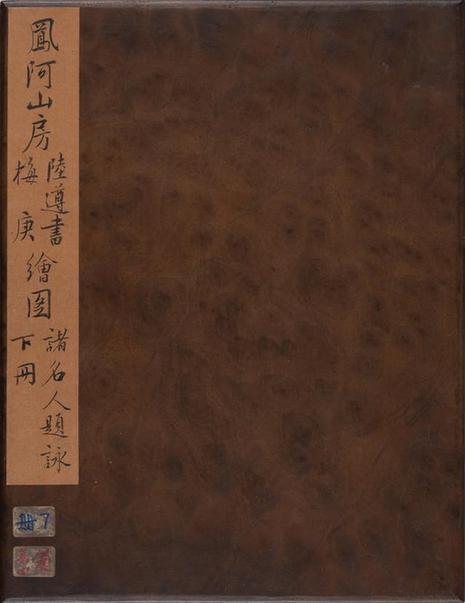 鳳阿山房
陸遵書
梅庚
繪圖
諸名人題詠
下冊
冊7